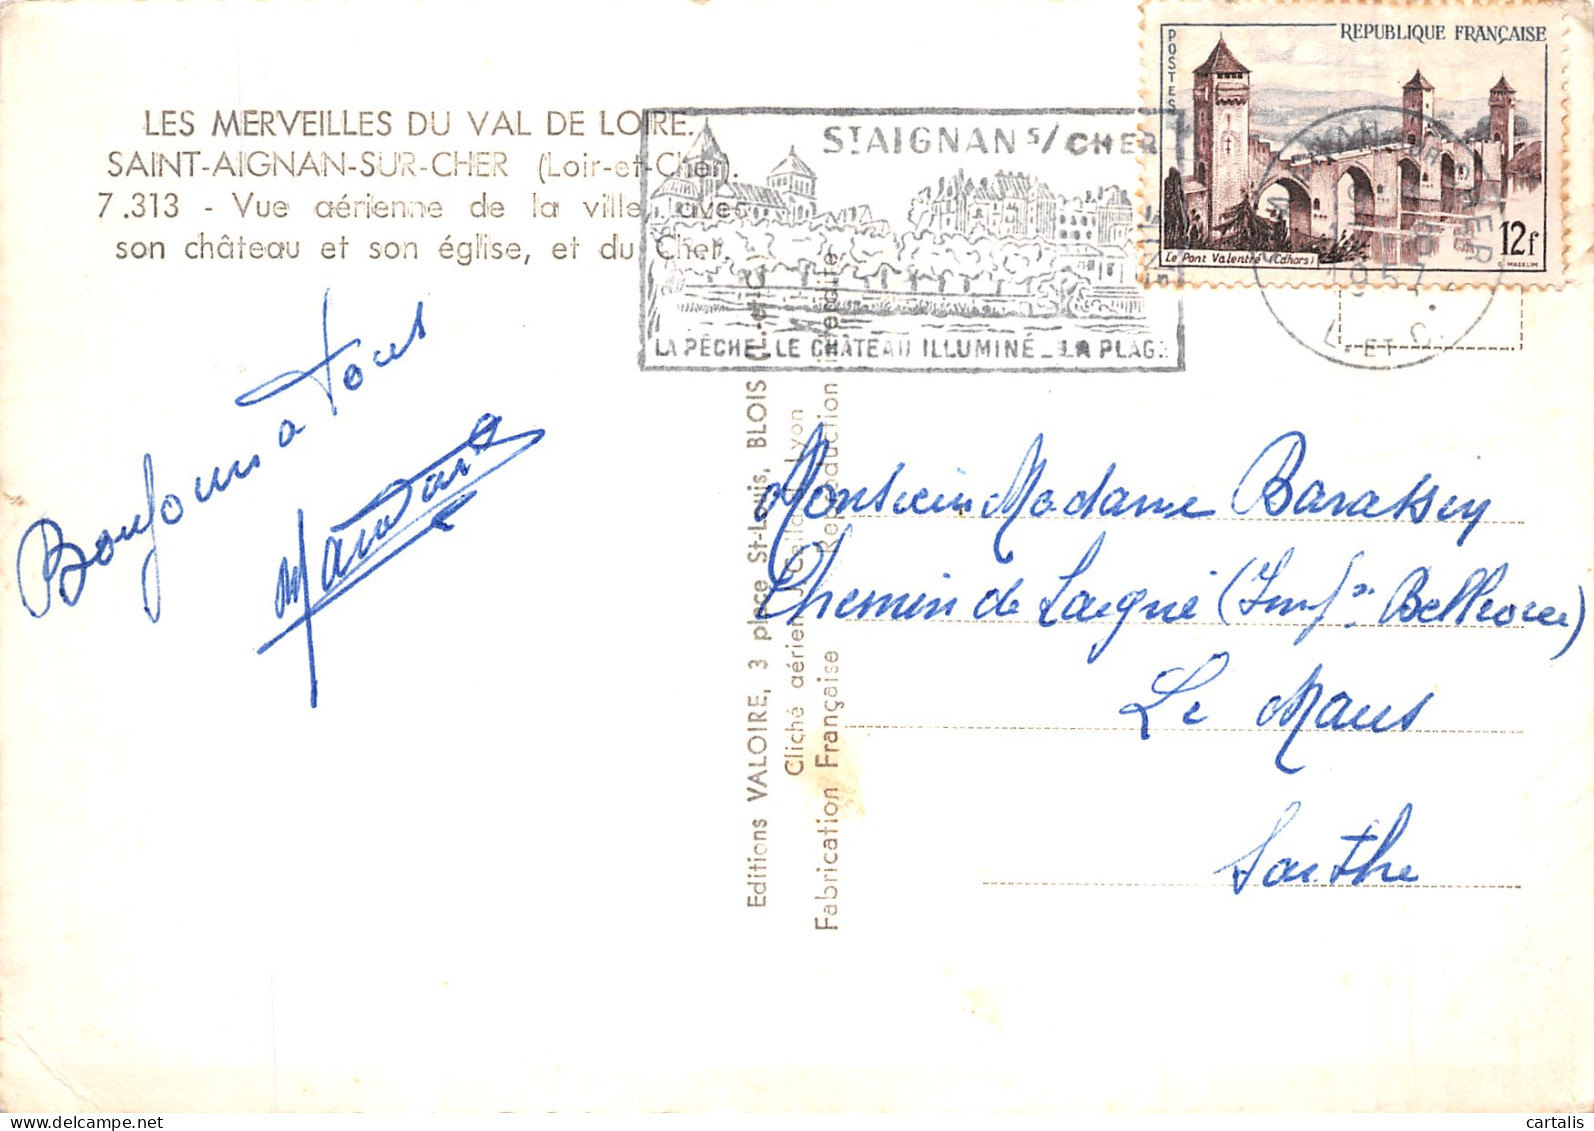 LES MERVEILLES DU VAL DE LOIRE.
SAINT-AIGNAN-SUR-CHER (Loir-et-Cher).
7.313 - Vue aérienne de la ville, avec
son château et son église, et du Cher.
ST AIGNAN S/ CHER
LA PÊCHE_LE CHÂTEAU ILLUMINÉ_LA PLAGE
REPUBLIQUE FRANÇAISE
POSTES
Le Pont Valentré (Cahors)
12f
C. MAZELIN
1957
L. ET C.
Bonjour à tous
Editions VALOIRE, 3 place St-Louis, BLOIS (L.-et-C.)
Cliché aérien J. Cellard, Lyon
Fabrication Française Reproduction interdite
Monsieur Madame
Chemin de Laigné (
Le Mans
Sarthe
cartalis
delcampe.net